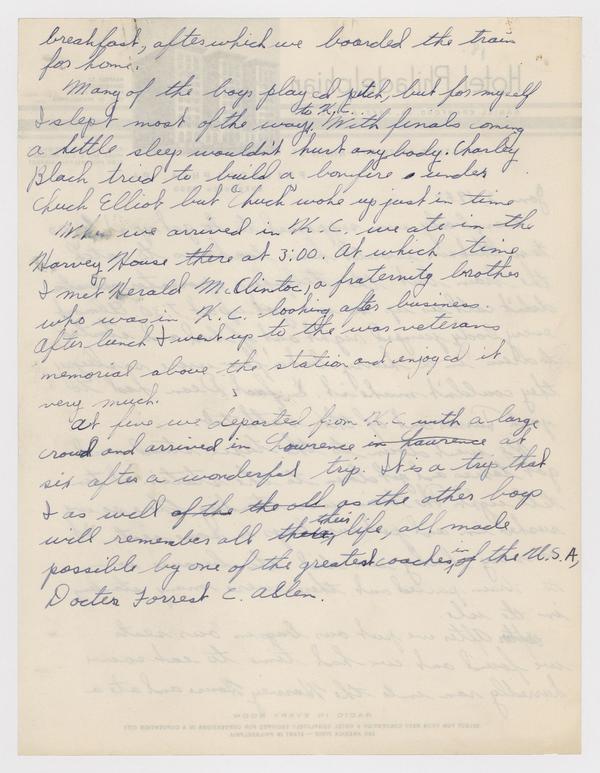 breakfast, after which we boarded the train
for home.
Many of the boys played pitch, but for myself
to K.C.
I slept most of the way. With finals coming
a little sleep wouldn't hurt anybody. Charley
Black tried to build a bonfire under
Chuck Elliot but "Chuck" woke up just in time
When we arrived in K.C. we ate in the
Harvey House there at 3:00. At which time
I met Herald McClintoc, a fraternity brother
who was in K.C. looking after business.
After lunch I went up to the war veterans
memorial above the station and enjoyed it
very much.
At five we departed from K.C. with a large
crowd and arrived in Lawrence in Lawrence at
six after a wonderful trip. It is a trip that
I as well of the the old as the other boys
will remember all their life, all made
possible by one of the greatest coaches in of the U.S.A,
Docter Forrest C. Allen.